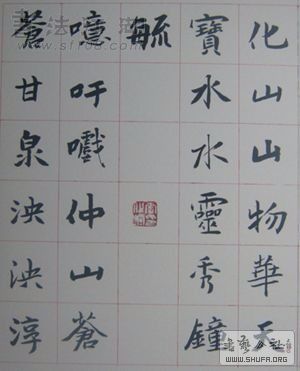 化山山物華天
寶水水靈秀鐘
毓
噫吁嚱仲山蒼
蒼甘泉泱泱淳
WWW.SHUFA.ORG